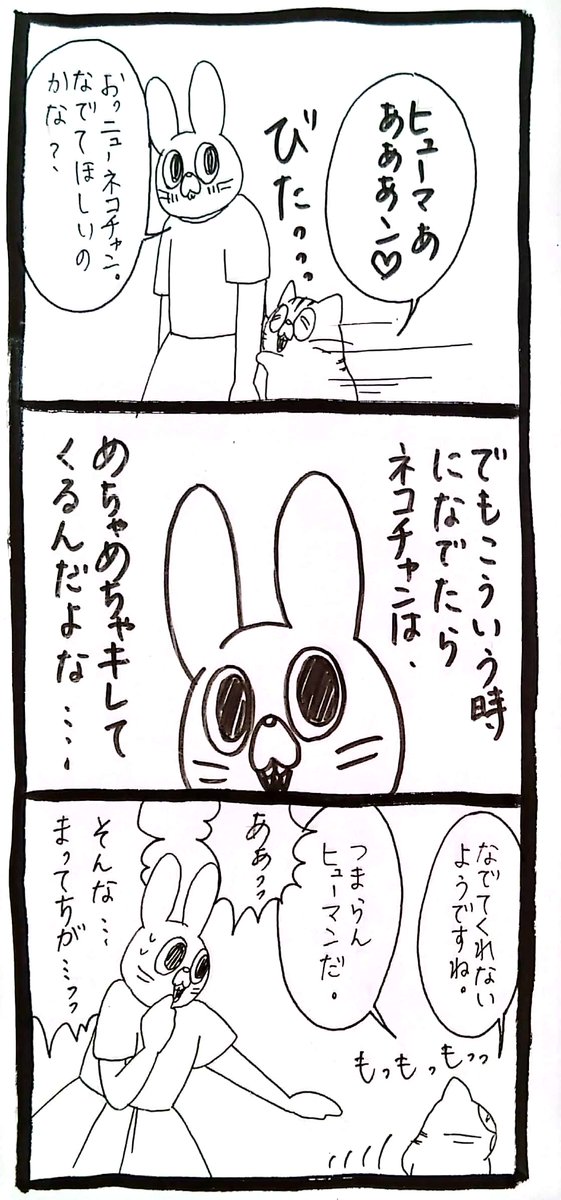 ヒューマあ
あぁあン♡
びたっっっ
おっニューネコチャン。
なでてほしいの
かな?、
でもこういう時
になでたら
ネコチャンは、
めちゃめちゃキレて
くるんだよな……
なでてくれない
ようですね。
つまらん
ヒューマンだ。
もっもっもっっ
ああっっ
そんな…
まってちが…っっ